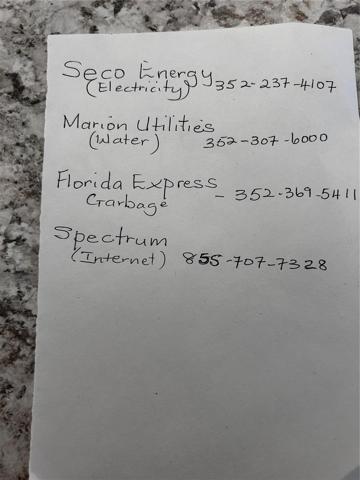 Seco Energy
(Electricity) 352-237-4107
Marion Utilities
(Water) 352-307-6000
Florida Express
Garbage - 352-369-5411
Spectrum
(Internet) 855-707-7328